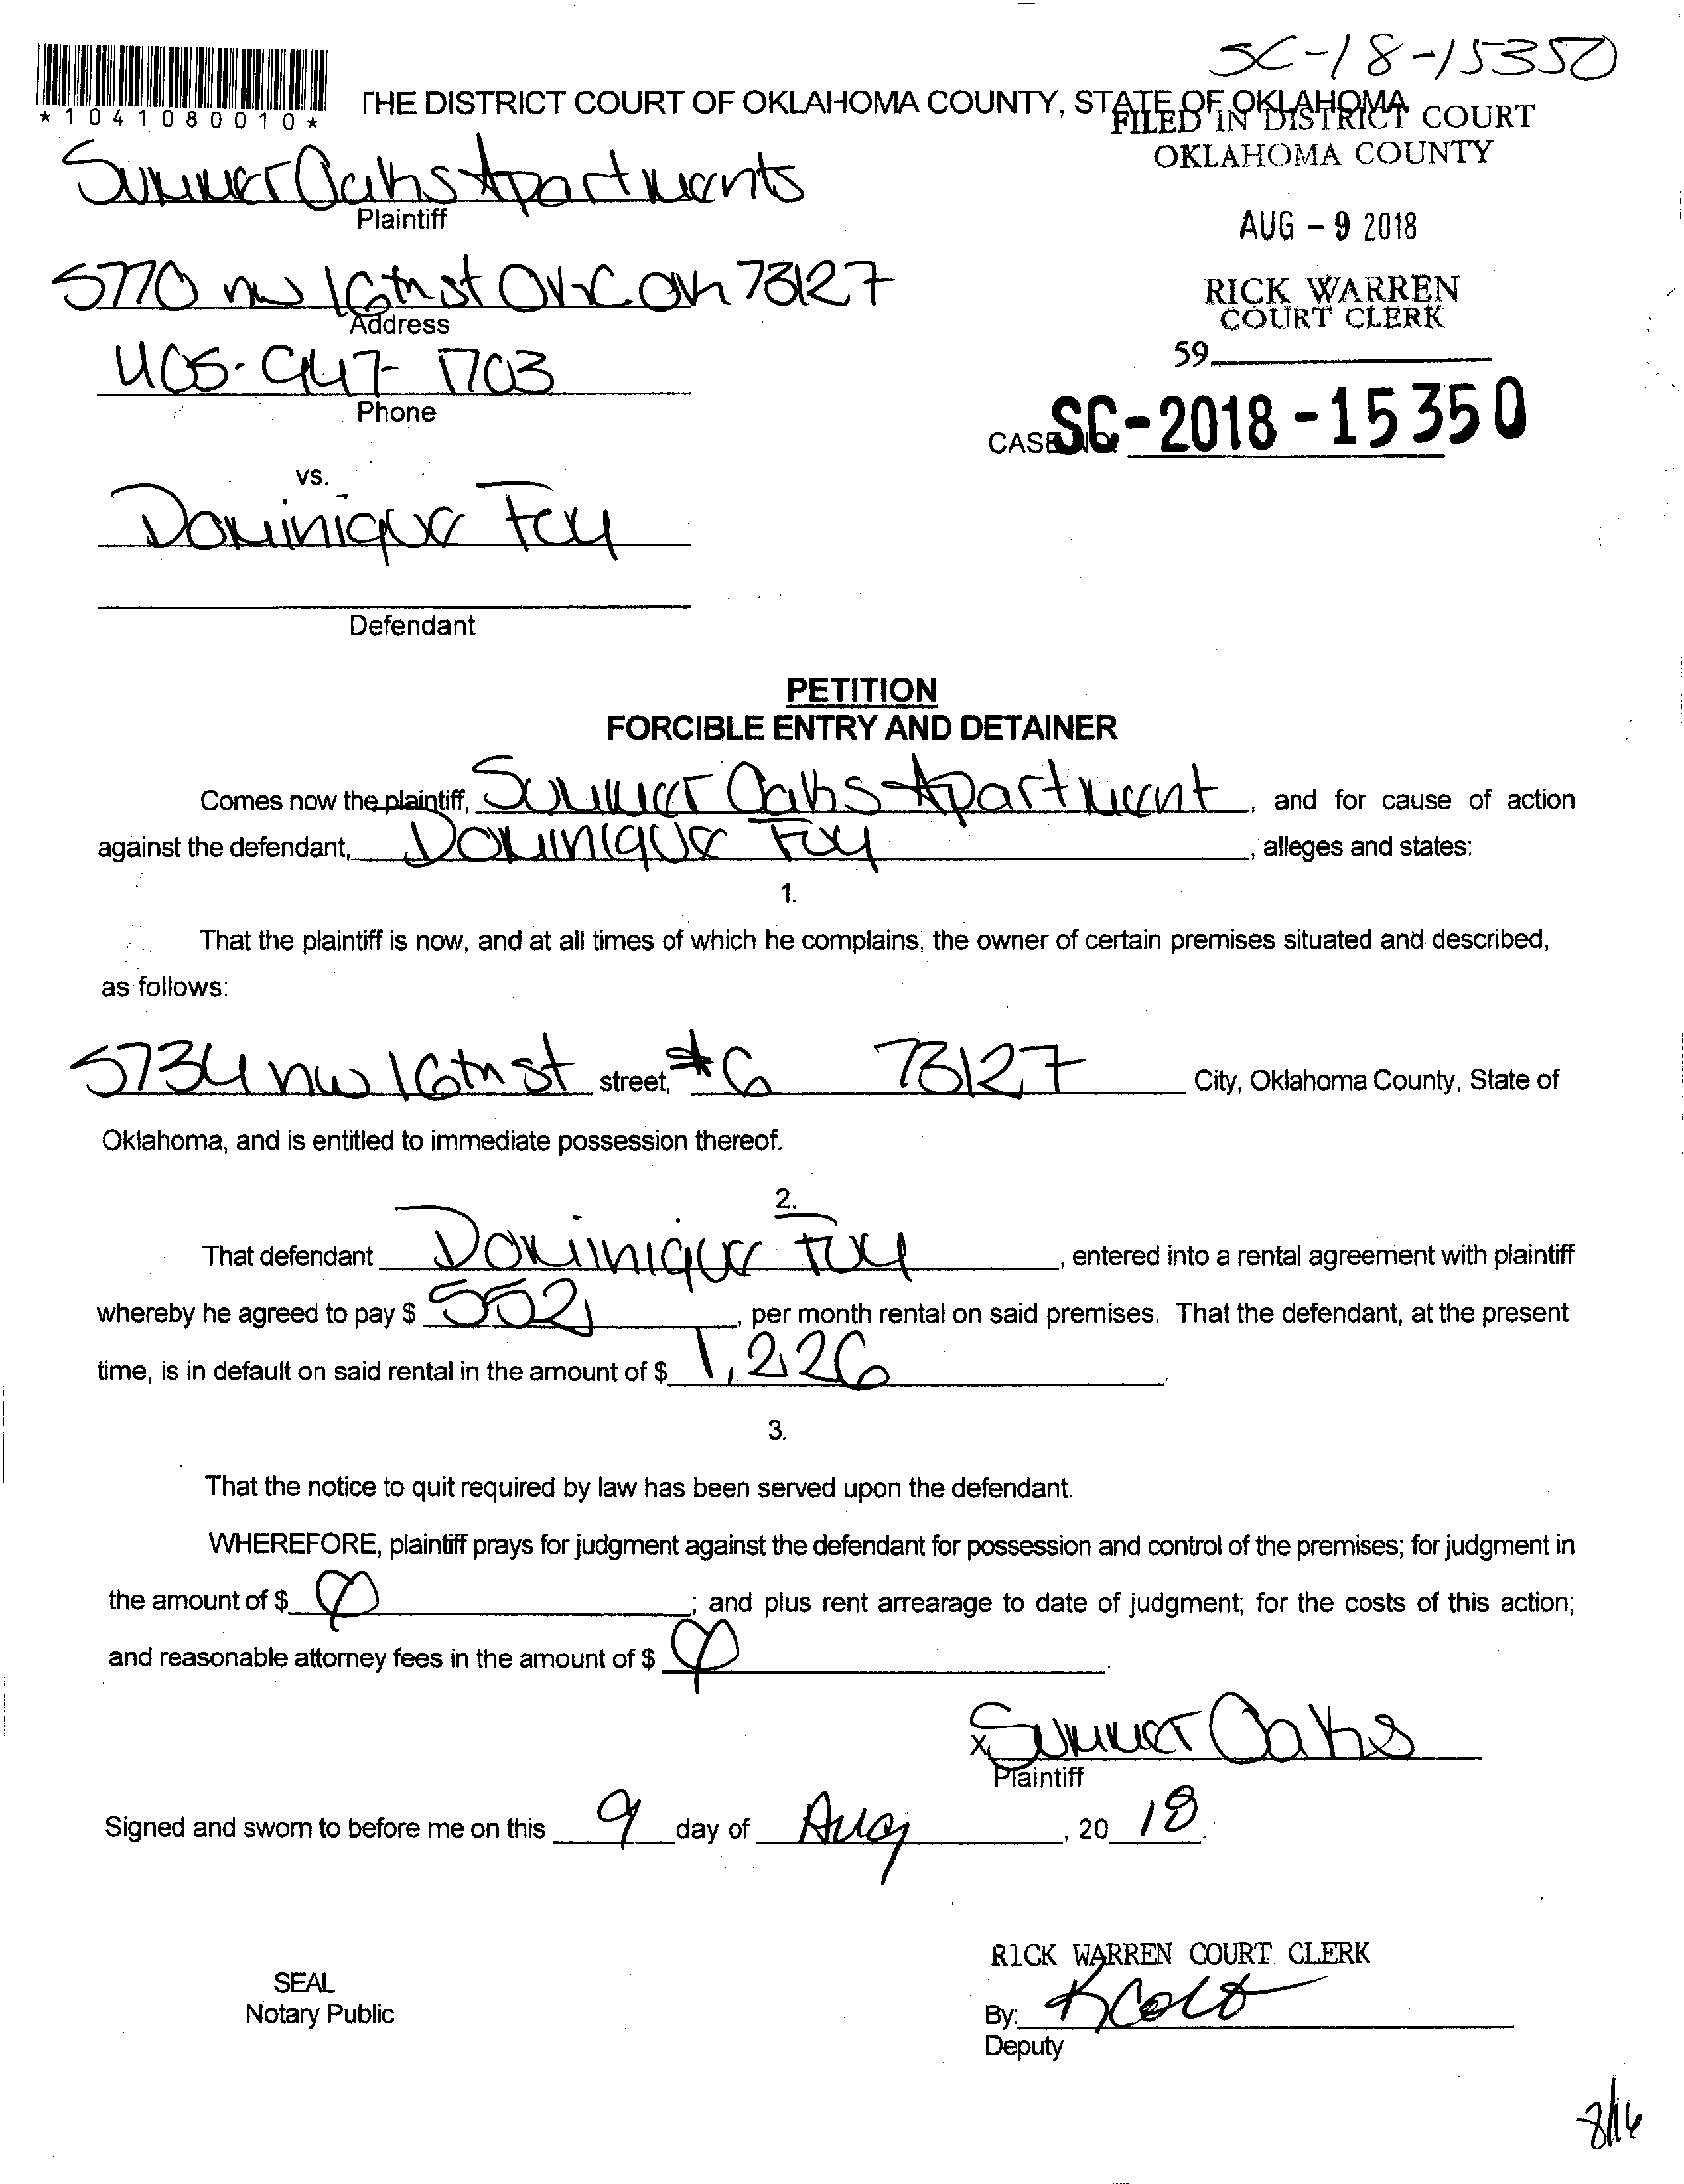 SC-18-15350
*1041080010*
THE DISTRICT COURT OF OKLAHOMA COUNTY, STATE OF OKLAHOMA
FILED IN DISTRICT COURT
OKLAHOMA COUNTY
Summer Oaks Apartments
Plaintiff
AUG - 9 2018
5770 nw 16th st OKC OK 73127
Address
RICK WARREN
COURT CLERK
405-947-1703
Phone
59
CASE NO. SC-2018-15350
vs.
Dominique Foy
Defendant
PETITION
FORCIBLE ENTRY AND DETAINER
Comes now the plaintiff, Summer Oaks Apartment, and for cause of action
against the defendant, Dominique Foy, alleges and states:
1.
That the plaintiff is now, and at all times of which he complains, the owner of certain premises situated and described,
as follows:
5734 nw 16th st street, #6 73127 City, Oklahoma County, State of
Oklahoma, and is entitled to immediate possession thereof.
2.
That defendant Dominique Foy, entered into a rental agreement with plaintiff
whereby he agreed to pay $ 552, per month rental on said premises. That the defendant, at the present
time, is in default on said rental in the amount of $ 1,226.
3.
That the notice to quit required by law has been served upon the defendant.
WHEREFORE, plaintiff prays for judgment against the defendant for possession and control of the premises; for judgment in
the amount of $ ; and plus rent arrearage to date of judgment; for the costs of this action;
and reasonable attorney fees in the amount of $ .
x Summer Oaks
Plaintiff
Signed and sworn to before me on this 9 day of Aug, 20 18.
RICK WARREN COURT CLERK
SEAL
Notary Public
By:
Deputy
8/16